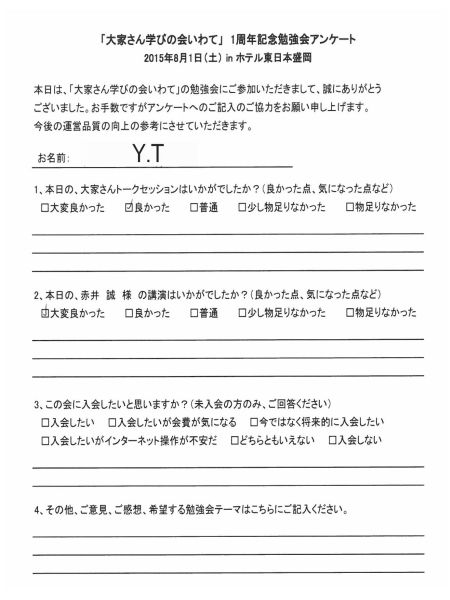 「大家さん学びの会いわて」 1周年記念勉強会アンケート
2015年8月1日(土) in ホテル東日本盛岡
本日は、「大家さん学びの会いわて」の勉強会にご参加いただきまして、誠にありがとう
ございました。お手数ですがアンケートへのご記入のご協力をお願い申し上げます。
今後の運営品質の向上の参考にさせていただきます。
お名前: Y.T
1、本日の、大家さんトークセッションはいかがでしたか?(良かった点、気になった点など)
□大変良かった ☑良かった □普通 □少し物足りなかった □物足りなかった
2、本日の、赤井 誠 様 の講演はいかがでしたか?(良かった点、気になった点など)
☑大変良かった □良かった □普通 □少し物足りなかった □物足りなかった
3、この会に入会したいと思いますか?(未入会の方のみ、ご回答ください)
□入会したい □入会したいが会費が気になる □今ではなく将来的に入会したい
□入会したいがインターネット操作が不安だ □どちらともいえない □入会しない
4、その他、ご意見、ご感想、希望する勉強会テーマはこちらにご記入ください。